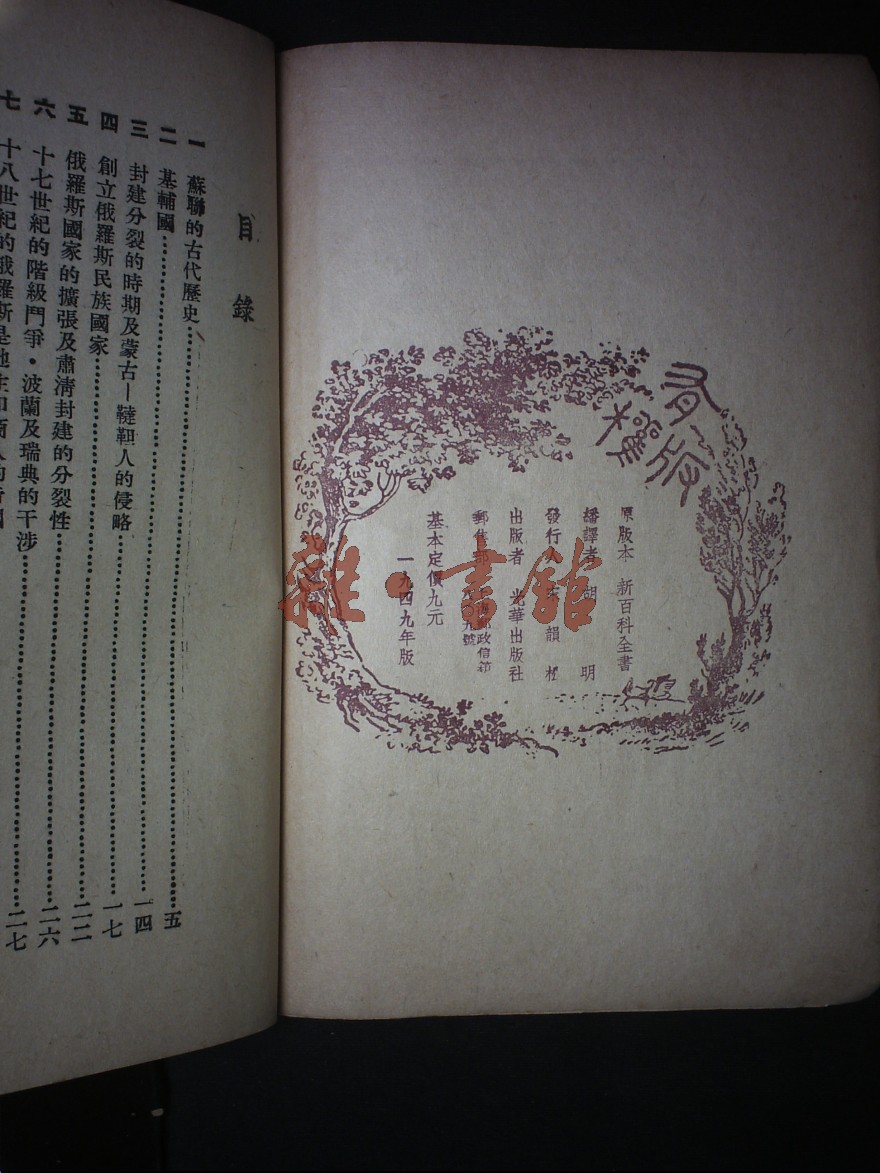 有版權
原版本 新百科全書
繙譯者 胡 明
發行人
出版者 光華出版社
郵售部 上海郵政信箱
基本定價九元
一九四九年版
目錄
一 蘇聯的古代歷史 五
二 基輔國 一四
三 封建分裂的時期及蒙古—韃靼人的侵略 一七
四 創立俄羅斯民族國家 二二
五 俄羅斯國家的擴張及肅淸封建的分裂性 二六
六 十七世紀的階級鬥爭・波蘭及瑞典的干涉 二七
七 十八世紀的俄羅斯是地主和商人的帝國
雜・書館